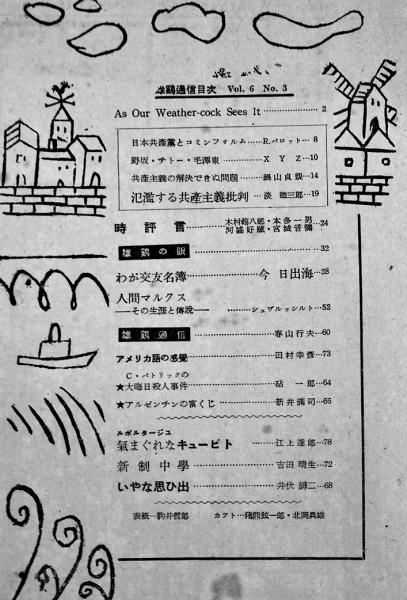 雄鷄通信目次 Vol. 6 No. 3
As Our Weather-cock Sees It ……… 2
日本共產黨とコミンフォルム……R.パロット…8
野坂・チトー・毛澤東……X Y Z…10
共產主義の解決できぬ問題……鍋山貞親…14
氾濫する共產主義批判……淡 德三郎…19
時評言……木村禧八郎・本多一男
河盛好藏・宮城音彌…24
雄鷄の眼……32
わが交友名簿……今 日出海…28
人間マルクス
——その生涯と傳說——……シュヴルッシルト…52
雄鷄通信……春山行夫…60
アメリカ語の感覺……田村幸彥…73
C・パトリックの
★大晦日殺人事件……砧 一郎…64
★アルゼンチンの富くじ……新井滿司…66
ルポルタージュ
氣まぐれなキューピト……江上達郞…78
新制中學……吉田晴生…72
いやな思ひ出……井伏 二…68
表紙…駒井哲郎 カット…殘熊弦一郎・北 典雄